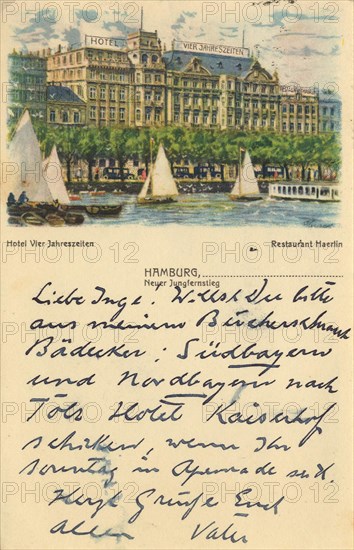 HOTEL
VIER JAHRESZEITEN
Hotel Vier Jahreszeiten
Restaurant Haerlin
HAMBURG,
Neuer Jungfernstieg
Liebe Inge! Willst Du bitte
aus meinem Bücherschrank
Bädecker: Südbayern
und Nordbayern nach
Tölz Hotel Kaiserhof
schicken, wenn Ihr
Sonntag in seid.
Herzl Grüße Euch
allen Vater